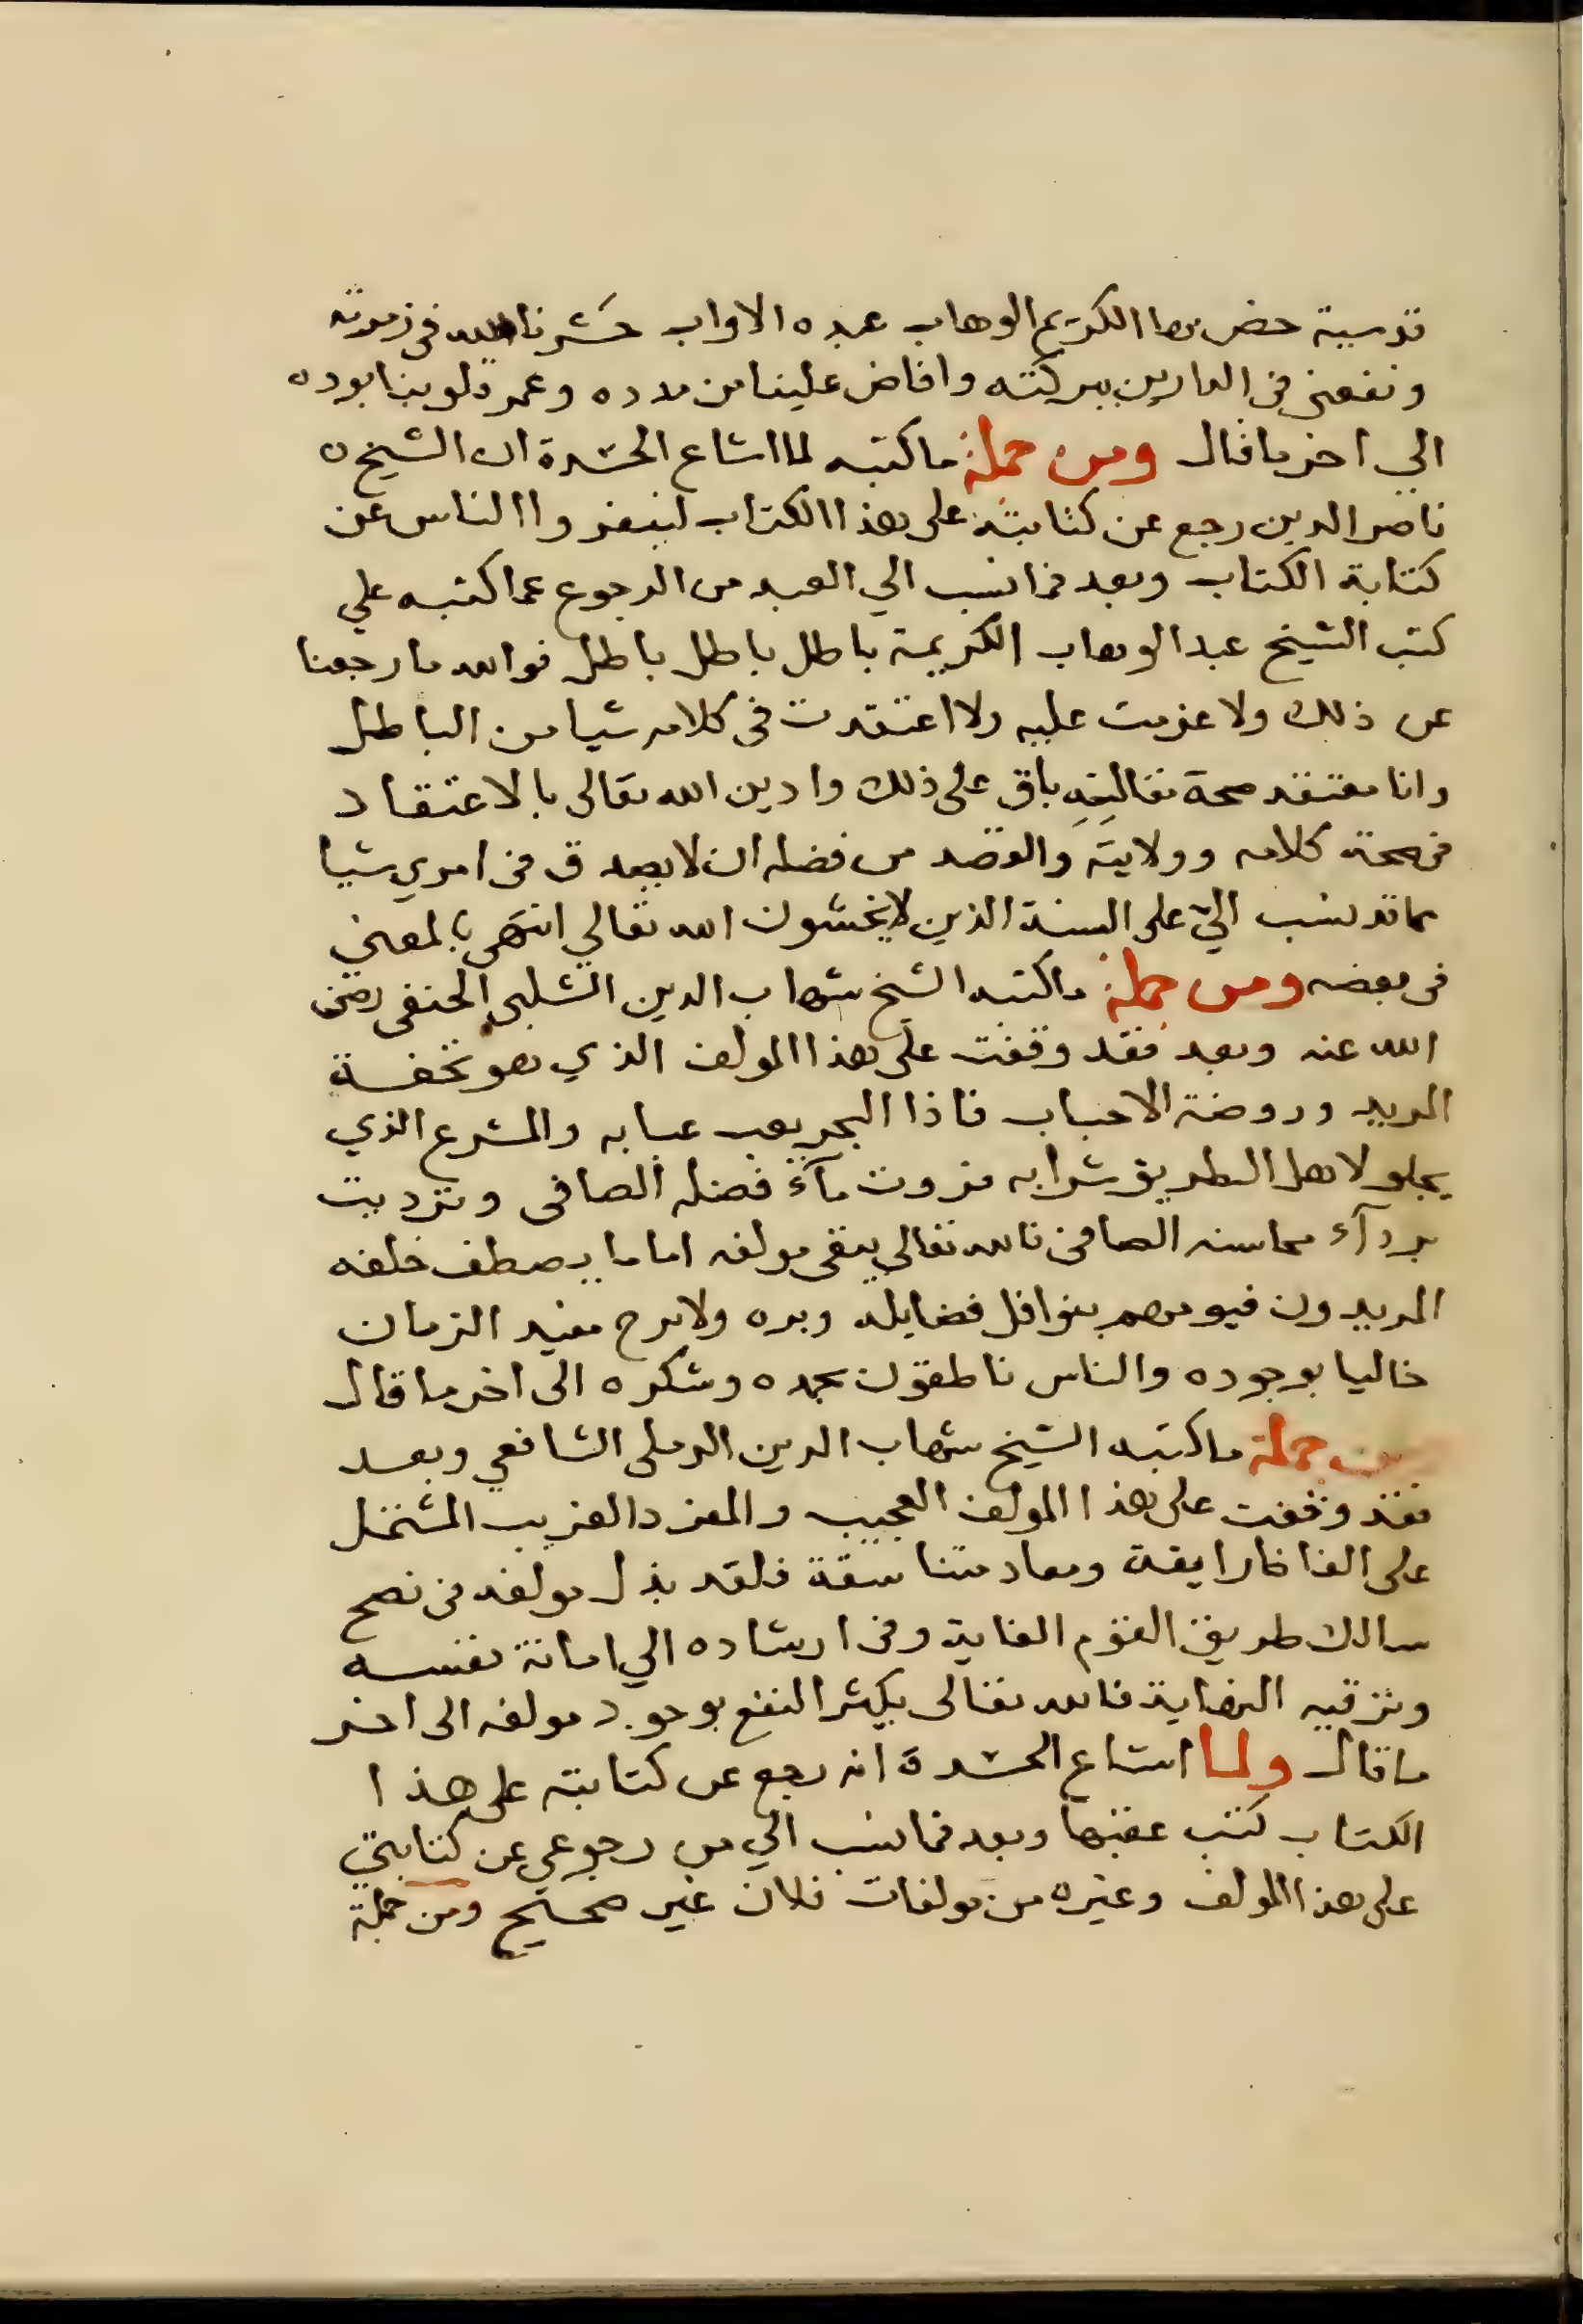 قدسية خص بها الكريم الوهاب عبده الاواب حشرنا الله في زمرته
ونفعني في الدارين ببركته وافاض علينا من مدده وعمر قلوبنا بوده
الي اخر ما قال ومن جملة ما كتبه لما اشاع الحسدة ان الشيخ
ناصر الدين رجع عن كتابته على هذا الكتاب لينفروا الناس عن
كتابة الكتاب وبعد فما نسب الي العبد من الرجوع عما كتبه علي
كتب الشيخ عبد الوهاب الكريمة باطل باطل باطل فوالله ما رجعنا
عن ذلك ولا عزمت عليه ولا اعتقدت في كلامه شيا من الباطل
وانا معتقد صحة تفاليفه باق على ذلك وادين الله تعالى بالاعتقاد
في صحة كلامه وولايته والقصد من فضله ان لا يصدق في امري شيا
مما قد نسب اليّ على السنة الذين لا يخشون الله تعالي انتهى بالمعني
في بعضه ومن جملة ما كتبه الشيخ شهاب الدين الشلبي الحنفي رضي
الله عنه وبعد فقد وقفت على هذا المولف الذي هو تحفة
المريد وروضة الاحباب فاذا البحر يعب عبابه والمشرع الذي
يحلو لاهل الطريق شرابه فرويت مآء فضله الصافي وتردبت
بردآء محاسنه الصافي فالله تعالي يبقي مولفه اماما يصطف خلفه
المريدون فيومهم بنوافل فضايله وبره ولا برح مفيد الزمان
خاليا بوجوده والناس ناطقون بحمده وشكره الى اخر ما قال
ومن جملة ما كتبه الشيخ شهاب الدين الرملى الشافعي وبعد
فقد وقفت على هذا المولف العجيب والمفرد الغريب المشتمل
على الفاظ رايقة ومعاد متناسقة فلقد بذل مولفه في نصح
سالك طريق القوم الغاية وفي ارشاده الي اماتة نفسه
وترقيه النهاية فالله تعالى يكثر النفع بوجود مولفه الى اخر
ما قال ولما اشاع الحسدة انه رجع عن كتابته على هذا
الكتاب كتب عقبها وبعد فما نسب الي من رجوعي عن كتابتي
على هذا المولف وغيره من مولفات فلان غير صحيح ومن جملة